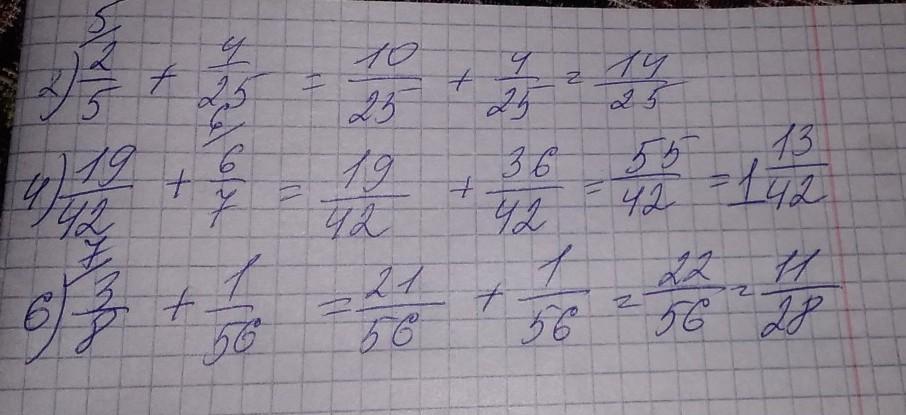 2) 5/ 2/5 + 4/25 = 10/25 + 4/25 = 14/25
4) 19/42 + 6/ 6/7 = 19/42 + 36/42 = 55/42 = 1 13/42
6) 7/ 3/8 + 1/56 = 21/56 + 1/56 = 22/56 = 11/28